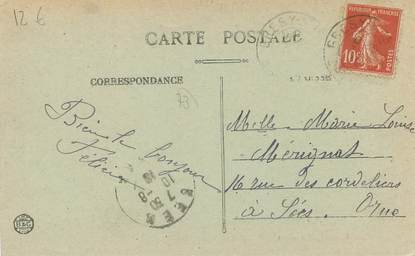 12 €
CARTE POSTALE
REPUBLIQUE FRANÇAISE
10c
POSTES
CORRESPONDANCE
Bien le bonjour
Mlle Marie Louise
Mérignat
16 rue des cordeliers
à Sées. Orne
7 8 50
10